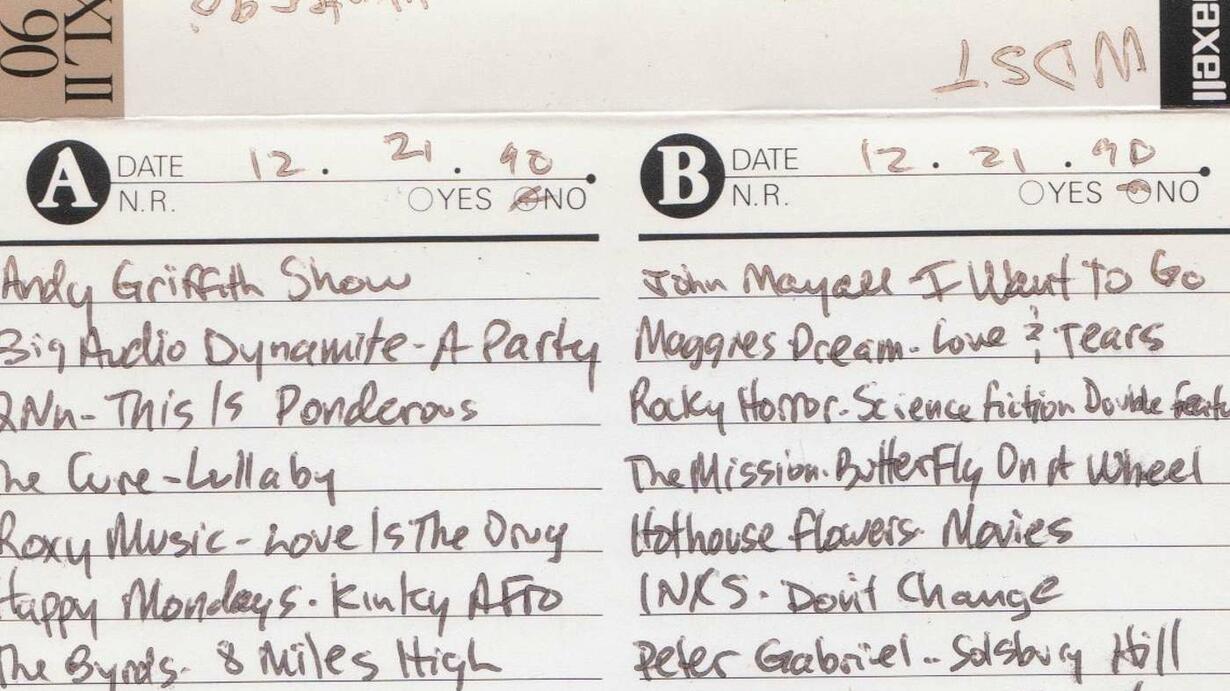 XLII 90
WDST
axell
A DATE 12. 21. 90
N.R. YES NO
Andy Griffith Show
Big Audio Dynamite - A Party
2Nu - This Is Ponderous
The Cure - Lullaby
Roxy Music - Love Is The Drug
Happy Mondays. Kinky Afro
The Byrds. 8 Miles High
B DATE 12. 21. 90
N.R. YES NO
John Mayall - I Want To Go
Maggies Dream. Love & Tears
Rocky Horror. Science Fiction Double Featu
The Mission. Butterfly On A Wheel
Hothouse Flowers. Movies
INXS. Don't Change
Peter Gabriel.. Solsbury Hill